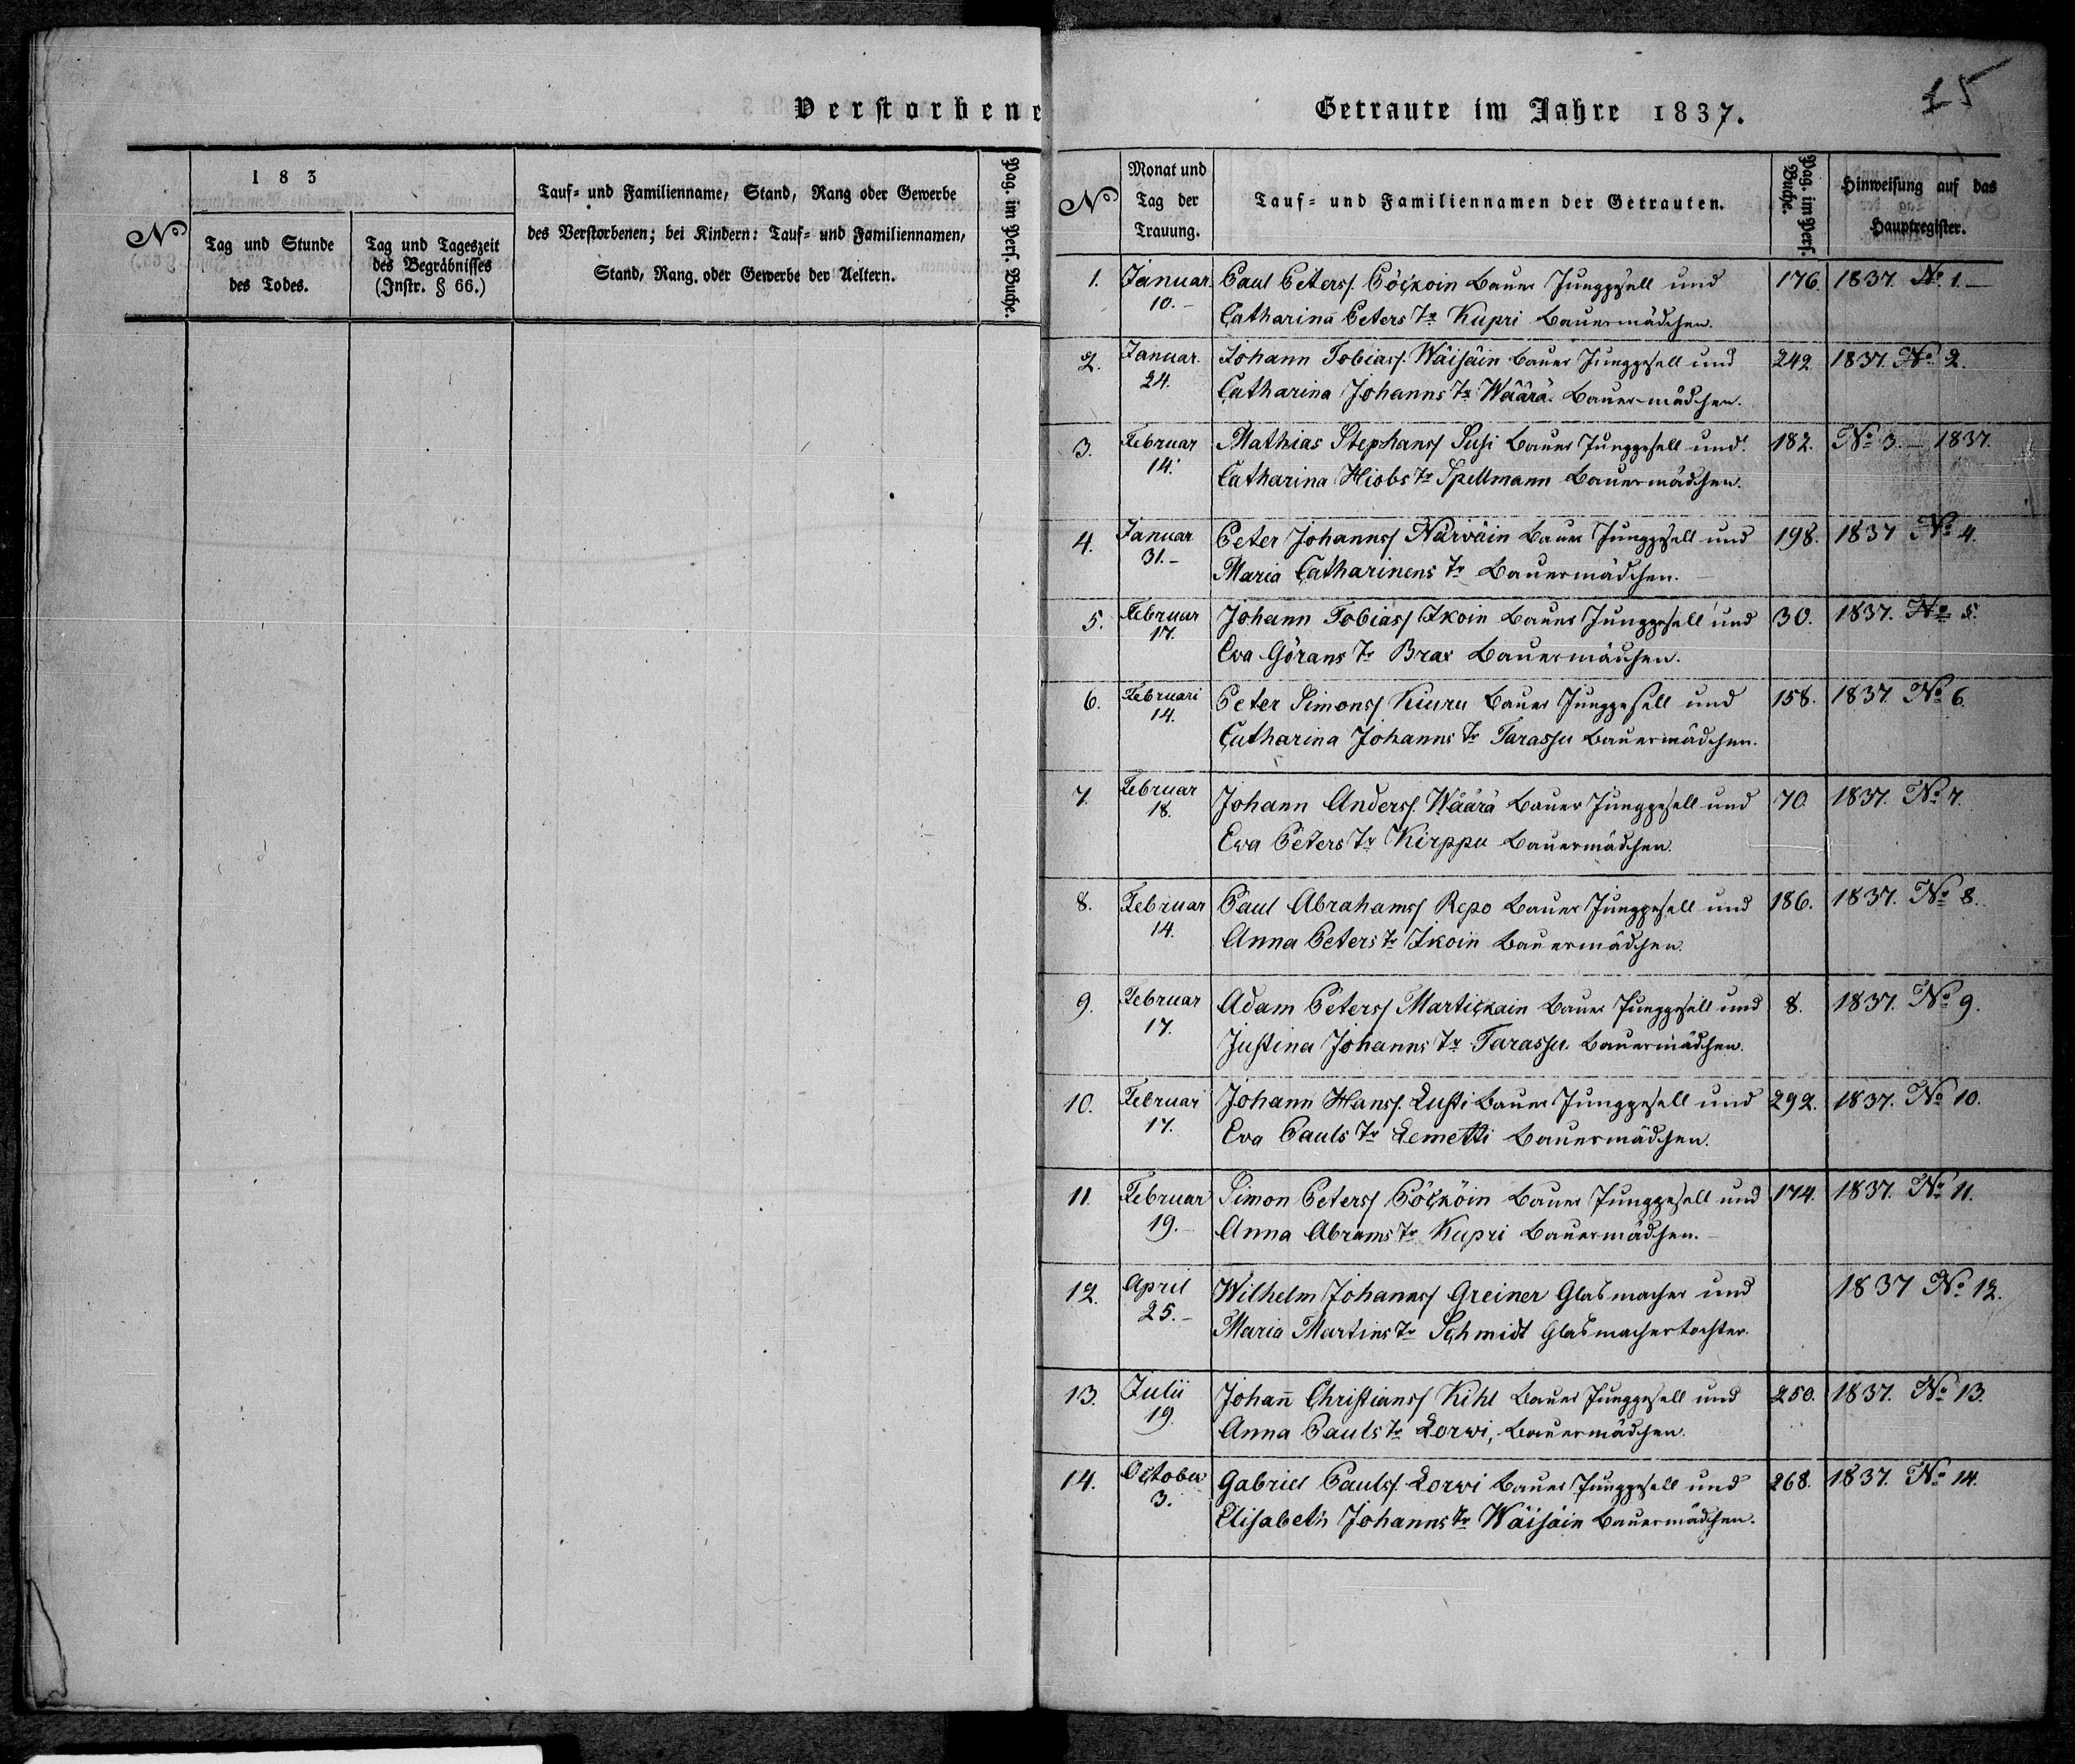 Verstorbene
183
No
Tag und Stunde
des Todes.
Tag und Tageszeit
des Begräbnisses
(Instr. § 66.)
Tauf- und Familienname, Stand, Rang oder Gewerbe
des Verstorbenen; bei Kindern: Tauf- und Familiennamen,
Stand, Rang oder Gewerbe der Aeltern.
Pag. im Pers. Buche.
15
Getraute im Jahre 1837.
No
Monat und
Tag der
Trauung.
Tauf- und Familiennamen der Getrauten.
Pag. im Pers.
Buche.
Hinweisung auf das
Hauptregister.
1. Januar. Paul Peters/. Pöckoin Bauer Junggesell und 176. 1837. No. 1.—
10.— Catharina Peters Tr Kupri Bauermädchen.
2. Januar. Johann Tobias/. Wäisäin Bauer Junggesell und 242 1837. No. 2.
24. Catharina Johanns Tr Wäärä Bauermädchen.
3. Februar Mathias Stephans/ Susi Bauer Junggesell und 182. No 3.— 1837.
14. Catharina Hiobs Tr Spellmann Bauermädchen.
4. Januar Peter Johanns/ Närwäin Bauer Junggesell und 198. 1837 No 4.
31.— Maria Catharinens Tr Bauermädchen.—
5. Februar Johann Tobias/ Ikoin Bauer Junggesell und 30. 1837. No 5.
17. Eva Görans Tr Brax Bauermädchen.
6. Februari Peter Simons/ Kiuru Bauer Junggesell und 158. 1837. No 6.
14. Catharina Johanns Tr Tarassu Bauermädchen.
7. Februar Johann Anders/. Wäärä Bauer Junggesell und 70. 1837. No 7.
18. Eva Peters Tr Kirppu Bauermädchen.
8. Februar Paul Abrahams/ Repo Bauer Junggesell und 186. 1837. No 8.
14. Anna Peters Tr Ikoin Bauermädchen.
9. Februar Adam Peters/ Martickain Bauer Junggesell und 8. 1837. No 9.
17. Justina Johanns Tr Tarassu Bauermädchen.
10. Februar Johann Hans/. Lusti Bauer Junggesell und 292. 1837. No 10.
17. Eva Pauls Tr Lemetti Bauermädchen.
11. Februar Simon Peters/ Pöcköin Bauer Junggesell und 174. 1837. No 11.
19.— Anna Abrams Tr Kupri Bauermädchen.—
12. April Wilhelm Johanns/ Greiner Glasmacher und 1837 No 12.
25.— Maria Martins Tr Schmidt Glasmachertochter.
13. Julii Johañ Christians/ Kihl Bauer Junggesell und 250. 1837. No 13.
19. Anna Pauls Tr Lorwi, Bauermädchen.
14. October Gabriel Pauls/. Lorwi Bauer Junggesell und 268. 1837. No 14.
3. Elisabeth Johanns Tr Wäisäin Bauermädchen.